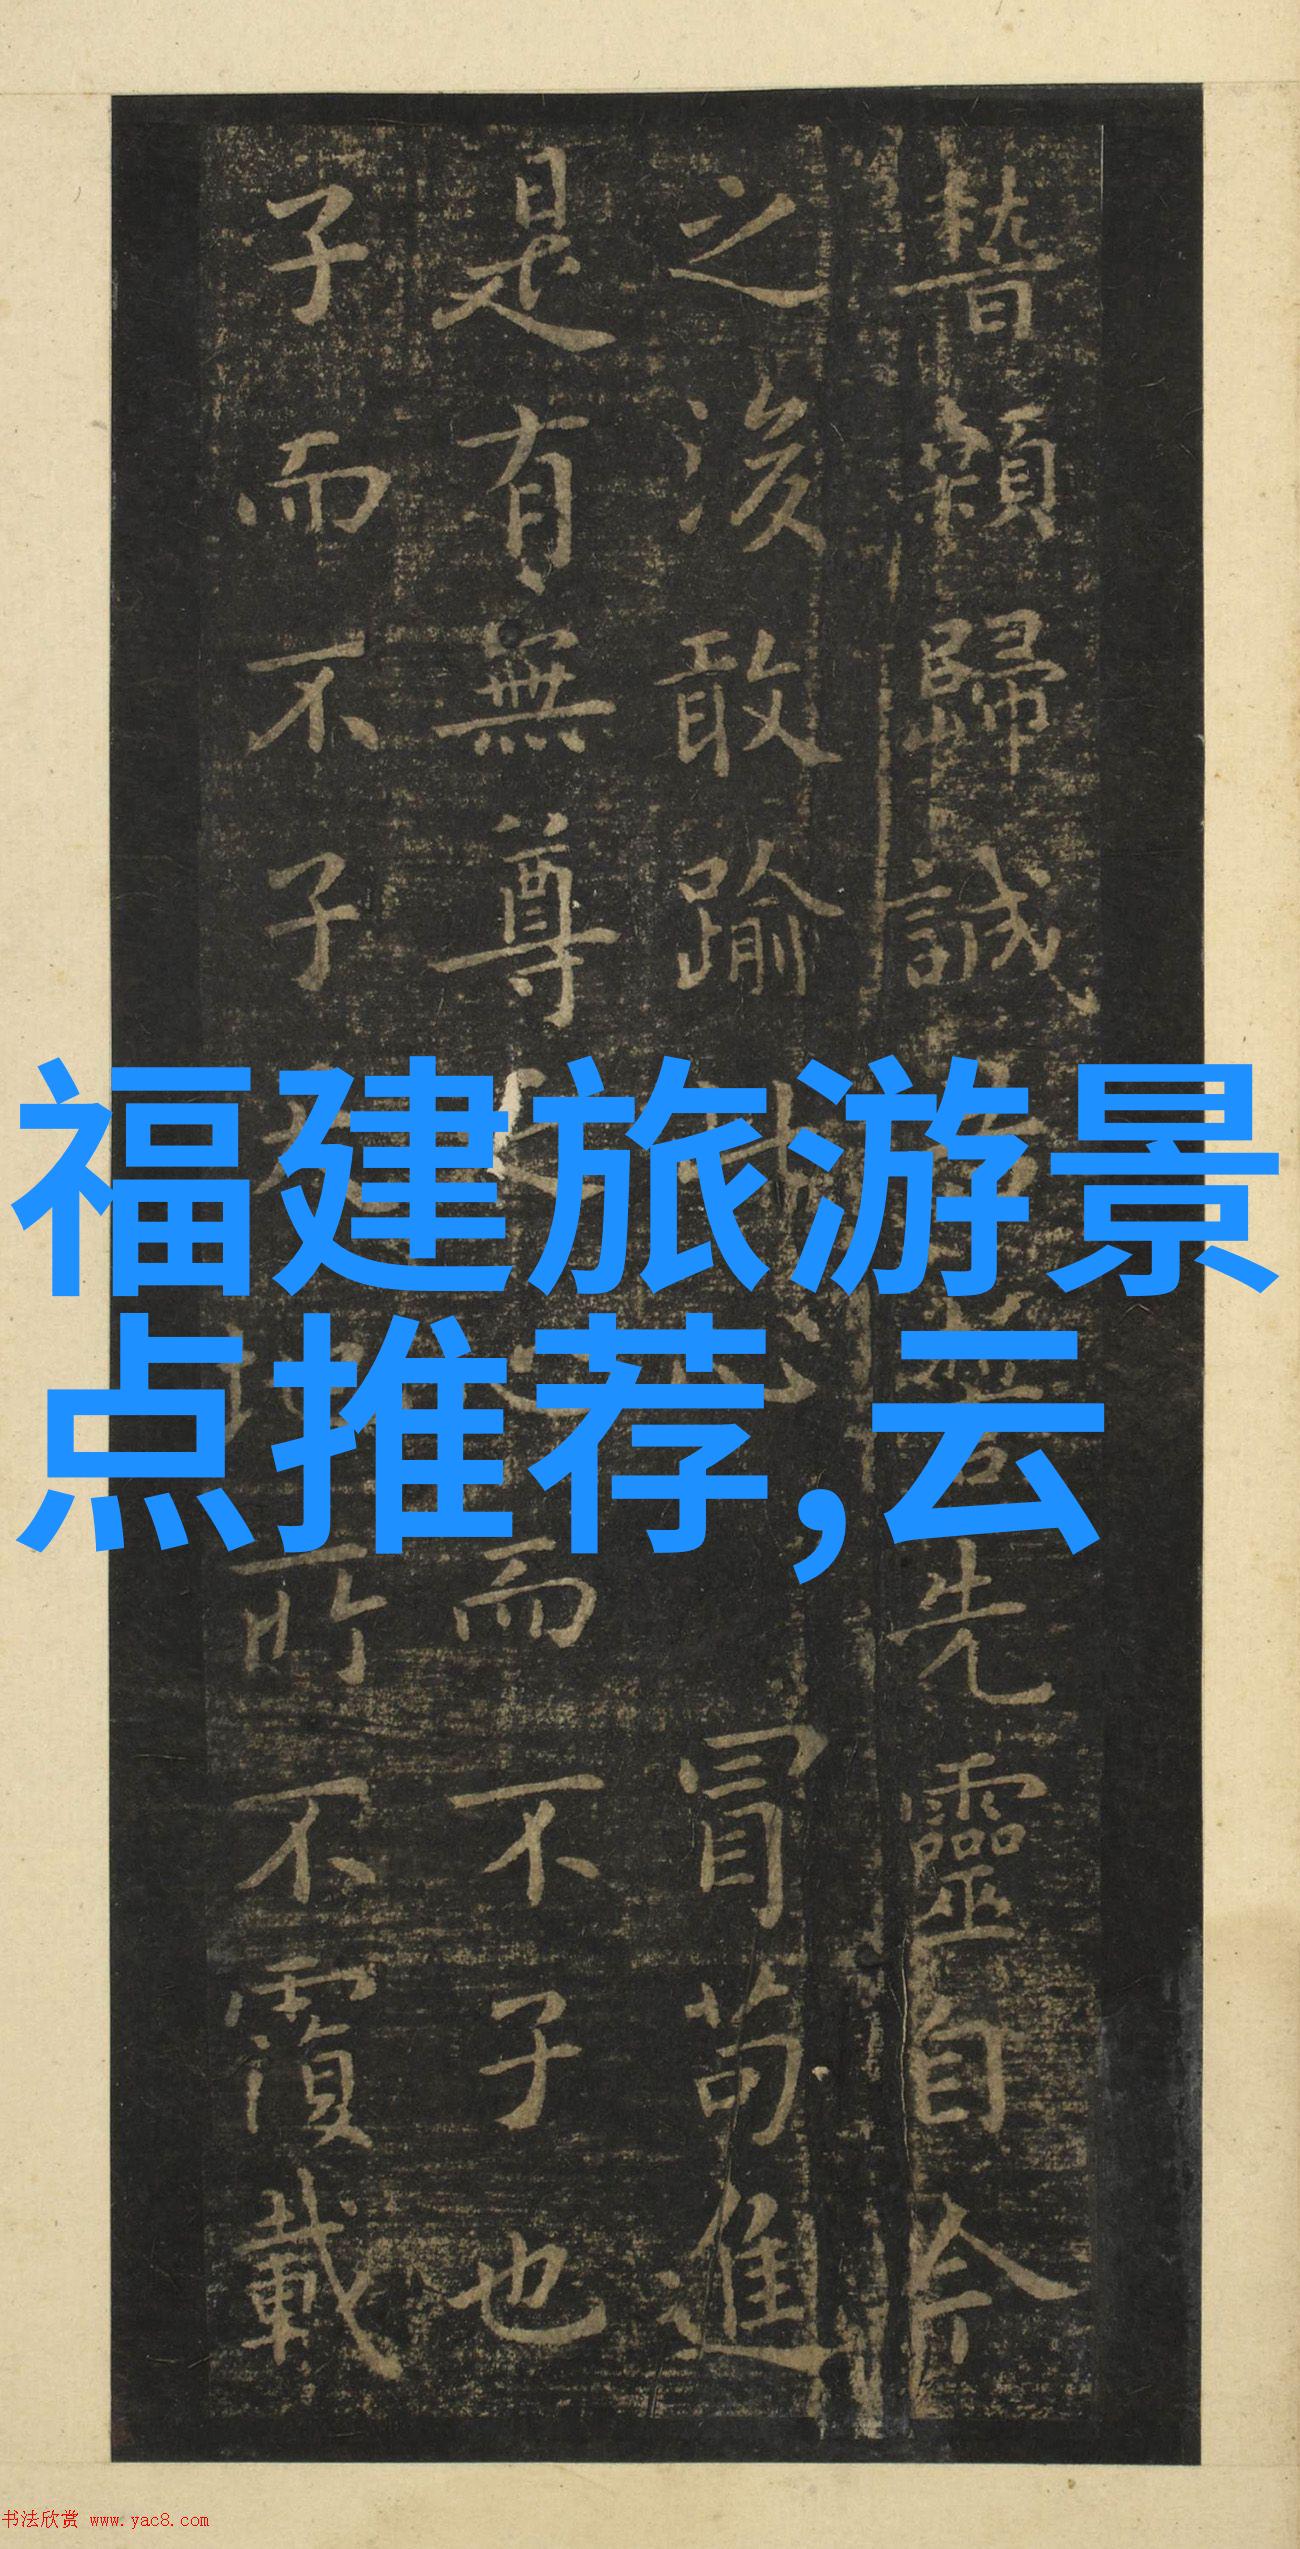 稽顙歸誠
先靈自
之後敢踰
冒苟進
是有無尊
而不子也
子而不子
所不覆載
福建旅游景
点推荐,云
书法欣赏 www.yac8.com